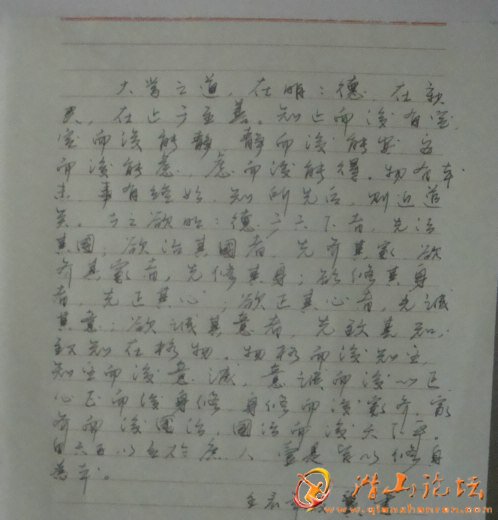 大学之道，在明：德，在新
民，在止于至善。知止而後有定，
定而後能静，静而後能安，安
而後能慮，慮而後能得。物有本
末，事有终始，知所先后，则近道
矣。古之欲明：德于天下者，先治
其國；欲治其國者，先齐其家；欲
齐其家者，先修其身；欲修其身
者，先正其心；欲正其心者，先诚
其意；欲诚其意者，先致其知；
致知在格物。物格而後知至，
知至而後意诚，意诚而後心正，
心正而後身修，身修而後家齐，家
齐而後國治，國治而後天下平。
自天子以至於庶人，壹是皆以修身
為本。
潜山论坛
www.qianshanren.com